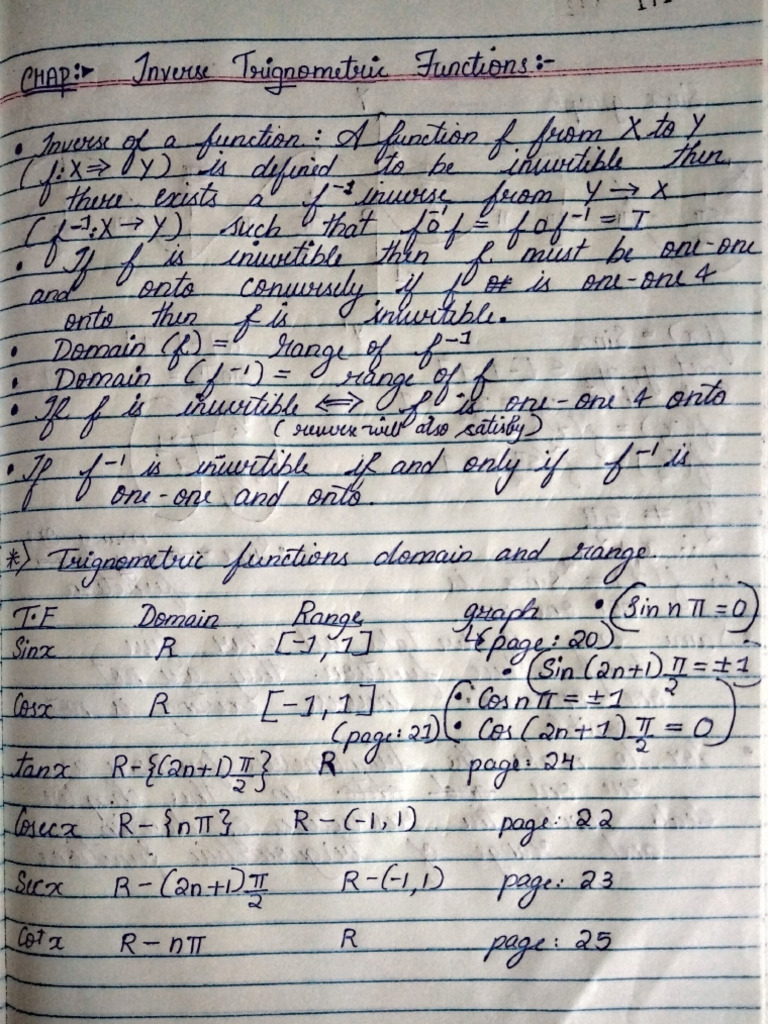 CHAP:- Inverse Trignometric Functions:-
• Inverse of a function: A function f from X to Y
(f:X⇒Y) is defined to be invertible then
there exists a f⁻¹ inverse from Y→X
(f⁻¹:X→Y) such that f⁻¹of = fof⁻¹ = I
• If f is invertible then f must be one-one
and onto conversely if f is one-one &
onto then f is invertible.
• Domain (f) = range of f⁻¹
• Domain (f⁻¹) = range of f
• If f is invertible ⟺ f is one-one & onto
(reverse will also satisfy)
• If f⁻¹ is invertible if and only if f⁻¹ is
one-one and onto.
*) Trignometric functions domain and range.
T.F Domain Range graph • (Sin nπ = 0)
Sinx R [-1, 1] (page: 20)
• (Sin (2n+1) π/2 = ±1
Cosx R [-1, 1] • Cos nπ = ±1
(page: 21) • Cos (2n+1) π/2 = 0
tanx R-{(2n+1) π/2} R page: 24
Cosecx R-{nπ} R-(-1,1) page: 22
Secx R-(2n+1) π/2 R-(-1,1) page: 23
Cotx R-nπ R page: 25